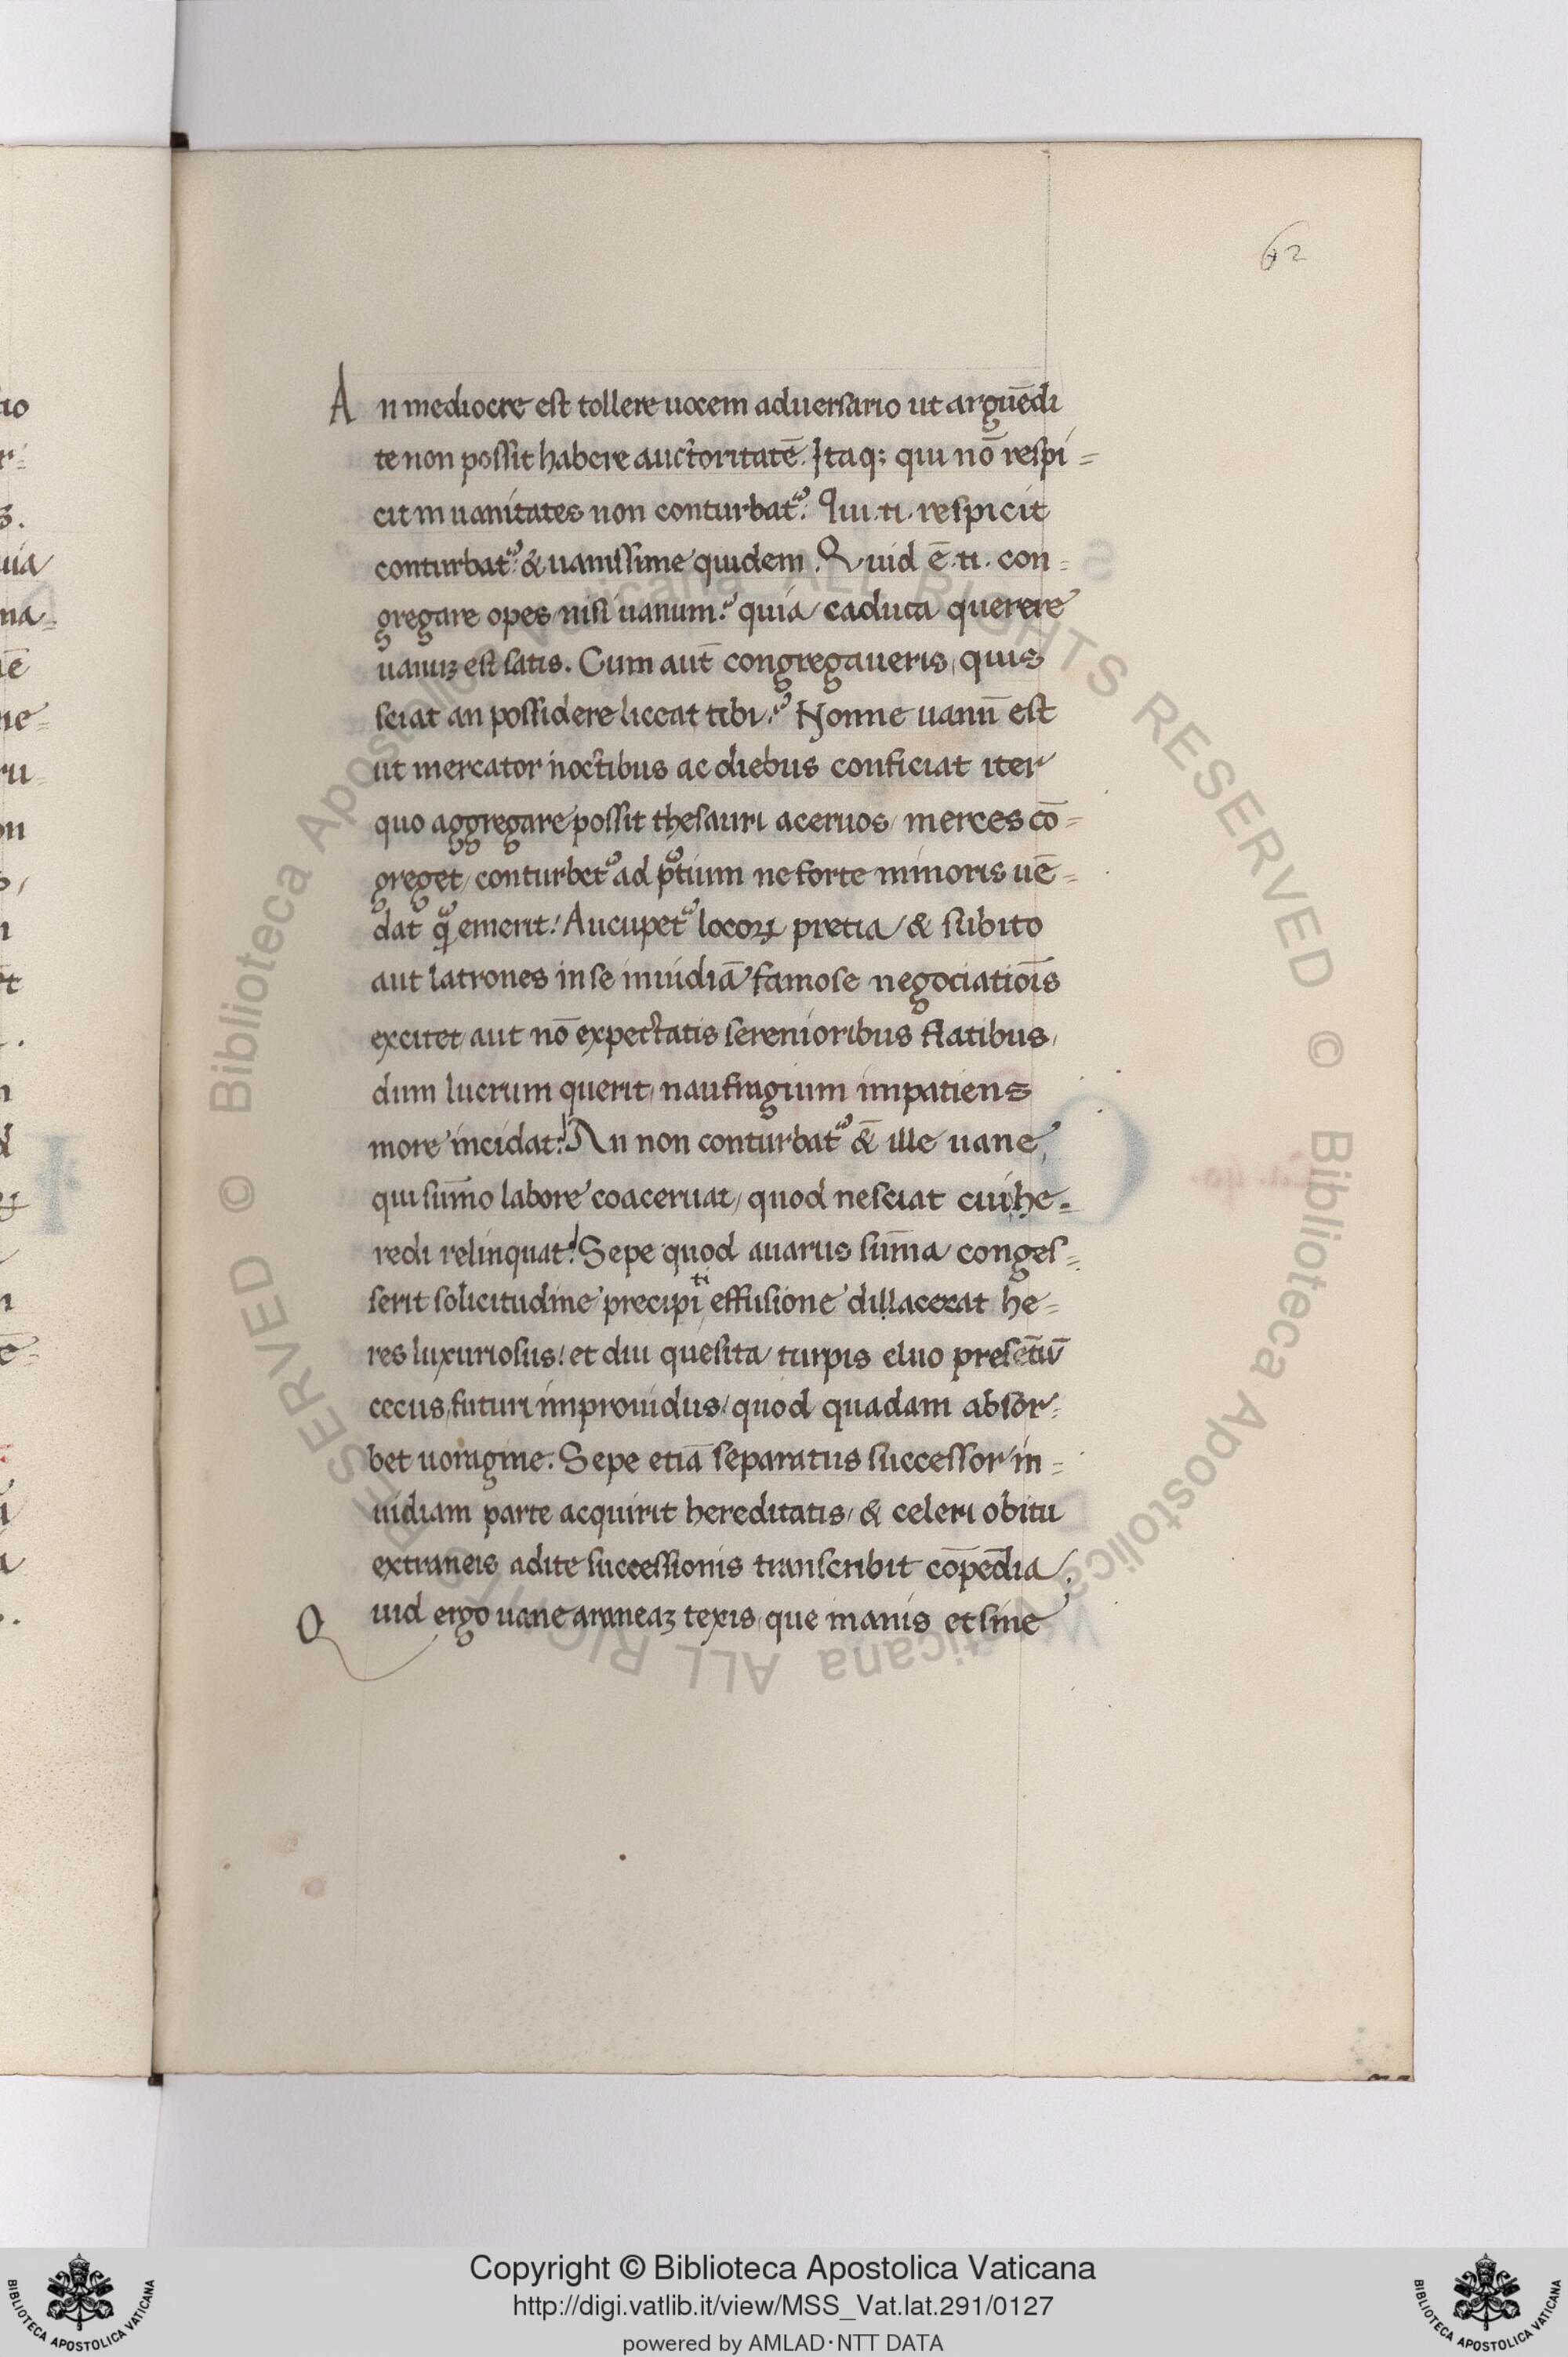 62
An mediocre est tollere uocem aduersario ut arguēdi
te non possit habere auctoritatē. Itaq; qui nō respi=
cit in uanitates non conturbat᷒. Qui .n. respicit
conturbat᷒: & uanissime quidem. Quid ē .n. con=
gregare opes nisi uanum? quia caduca querere
uanuꝫ est satis. Cum aut̄ congregaueris, quis
sciat an possidere liceat tibi? Nonne uanū est
ut mercator noctibus ac diebus conficiat iter
quo aggregare possit thesauri aceruos/ merces cō=
greget/ conturbet᷒ ad p̄tium ne forte minoris uē=
dat q̄ emerit! Aucupet᷒ locoꝝ pretia/ & subito
aut latrones in se inuidiā famose negociatiōis
excitet/ aut nō expectatis serenioribus flatibus/
dum lucrum querit/ naufragium impatiens
more incidat? An non conturbat᷒ & ille uane,
qui sūmo labore coaceruat/ quod nesciat cui he=
redi relinquat? Sepe quod auarus sūma conges=
serit solicitudine precipiti effusione dillacerat he=
res luxuriosus! et diu quesita/ turpis eluo presētiū
cecus, futuri improuidus/ quod quadam absor=
bet uoragine. Sepe etiā separatus successor in=
uidiam parte acquirit hereditatis/ & celeri obitu
extraneis adite successionis transcribit cōpēdia.
Quid ergo uane araneaꝫ texis, que inanis et sine
Copyright © Biblioteca Apostolica Vaticana
http://digi.vatlib.it/view/MSS_Vat.lat.291/0127
powered by AMLAD·NTT DATA